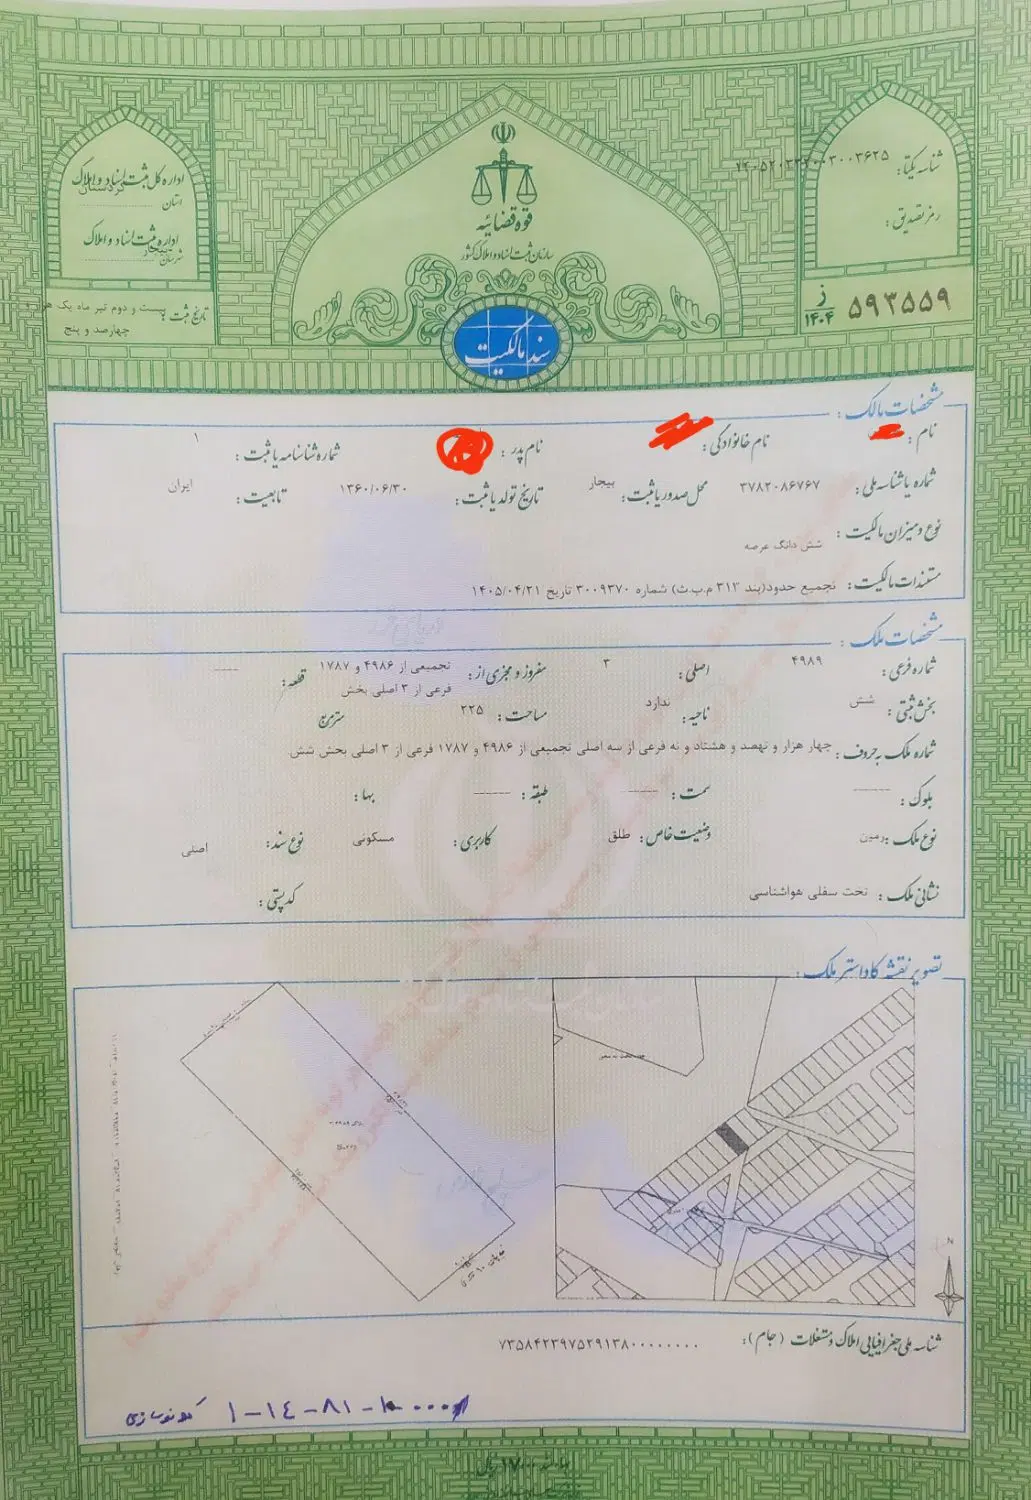 قوه قضائیه
سازمان ثبت اسناد و املاک کشور
سند مالکیت
شناسه یکتا: ۱۴۰۵۲۰۳۳۲۰۰۳۰۰۳۶۲۵
رمز تصدیق:
۵۹۳۵۵۹ ز ۱۴۰۴
اداره کل ثبت اسناد و املاک
استان کردستان
اداره ثبت اسناد و املاک
شهرستان بیجار
تاریخ ثبت: بیست و دوم تیر ماه یک
چهارصد و پنج
مشخصات مالک:
نام: نام خانوادگی: نام پدر: شماره شناسنامه یا ثبت: ۱
شماره یا شناسه ملی: ۳۷۸۲۰۸۶۷۶۷ محل صدور یا ثبت: بیجار تاریخ تولد یا ثبت: ۱۳۶۰/۰۶/۳۰ تابعیت: ایران
نوع و میزان مالکیت: شش دانگ عرصه
مستندات مالکیت: تجمیع حدود(بند ۳۱۳ م.ب.ث) شماره ۳۰۰۹۳۷۰ تاریخ ۱۴۰۵/۰۴/۲۱
مشخصات ملک:
شماره فرعی: ۴۹۸۹ اصلی: ۳ مفروز و مجزی از: تجمیعی از ۴۹۸۶ و ۱۷۸۷ فرعی از ۳ اصلی بخش قطعه: ------
بخش ثبتی: شش ناحیه: ندارد مساحت: ۲۲۵ مترمربع
شماره ملک به حروف: چهار هزار و نهصد و هشتاد و نه فرعی از سه اصلی تجمیعی از ۴۹۸۶ و ۱۷۸۷ فرعی از ۳ اصلی بخش شش
بلوک: ------ سمت: ------ طبقه: ------ بها:
نوع ملک: زمین وضعیت خاص: طلق کاربری: مسکونی نوع سند: اصلی
نشانی ملک: تخت سفلی هواشناسی کدپستی:
تصویر نقشه کاداستر ملک:
N
شناسه ملی جغرافیایی املاک و مستغلات (جام): ۷۳۵۸۴۲۳۹۷۵۲۹۱۳۸۰۰۰۰۰۰۰۰۰
کد نوسازی